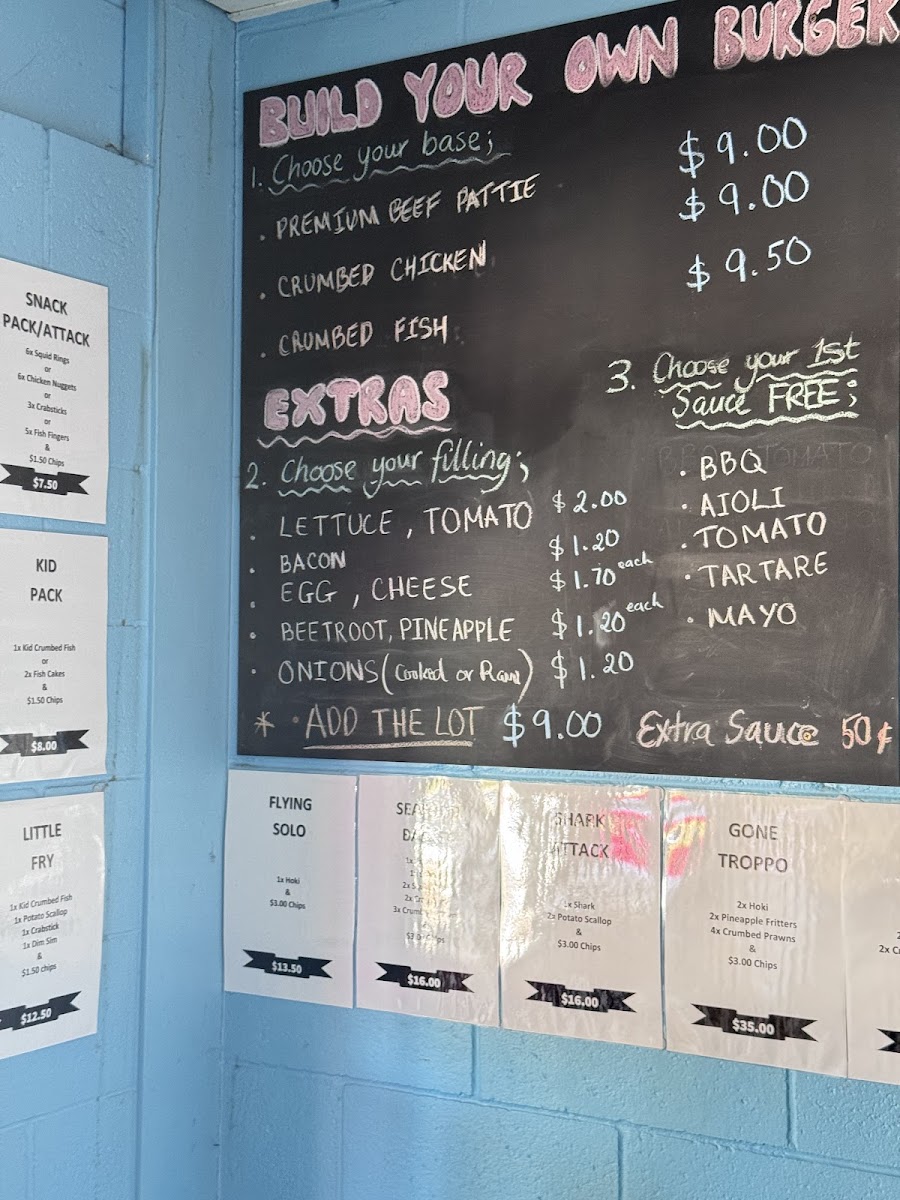 BUILD YOUR OWN BURGER
1. Choose your base;
• PREMIUM BEEF PATTIE $9.00
• CRUMBED CHICKEN $9.00
• CRUMBED FISH $9.50
EXTRAS
2. Choose your filling;
• LETTUCE, TOMATO $2.00
• BACON $1.20
• EGG, CHEESE $1.70 each
• BEETROOT, PINEAPPLE $1.20 each
• ONIONS (Cooked or Raw) $1.20
* • ADD THE LOT $9.00
3. Choose your 1st
Sauce FREE;
• BBQ
• AIOLI
• TOMATO
• TARTARE
• MAYO
Extra Sauce 50¢
SNACK
PACK/ATTACK
6x Squid Rings
or
6x Chicken Nuggets
or
3x Crabsticks
or
5x Fish Fingers
&
$1.50 Chips
$7.50
KID
PACK
1x Kid Crumbed Fish
or
2x Fish Cakes
&
$1.50 Chips
$8.00
LITTLE
FRY
1x Kid Crumbed Fish
1x Potato Scallop
1x Crabstick
1x Dim Sim
&
$1.50 Chips
$12.50
FLYING
SOLO
1x Hoki
&
$3.00 Chips
$13.50
$16.00
SHARK
ATTACK
1x Shark
2x Potato Scallop
&
$3.00 Chips
$16.00
GONE
TROPPO
2x Hoki
2x Pineapple Fritters
4x Crumbed Prawns
&
$3.00 Chips
$35.00